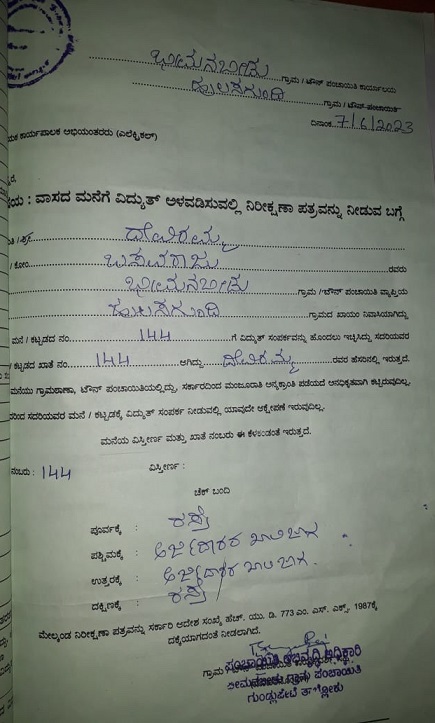 ಭೀಮನಬೀಡು ಗ್ರಾಮ / ಟೌನ್ ಪಂಚಾಯಿತಿ ಕಾರ್ಯಾಲಯ
ಹುಲಸಗುಂದಿ ಗ್ರಾಮ / ಟೌನ್ ಪಂಚಾಯಿತಿ
ದಿನಾಂಕ 7/6/2023
ಕಾರ್ಯಪಾಲಕ ಅಭಿಯಂತರರು (ಎಲೆಕ್ಟ್ರಿಕಲ್)
ಯ : ವಾಸದ ಮನೆಗೆ ವಿದ್ಯುತ್ ಅಳವಡಿಸುವಲ್ಲಿ ನಿರೀಕ್ಷಣಾ ಪತ್ರವನ್ನು ನೀಡುವ ಬಗ್ಗೆ
ದೇವಿರಮ್ಮ
/ ಕೋಂ. ಬಸವರಾಜು ರವರು
ಭೀಮನಬೀಡು ಗ್ರಾಮ / ಟೌನ್ ಪಂಚಾಯಿತಿ ವ್ಯಾಪ್ತಿಯ
ಹುಲಸಗುಂದಿ ಗ್ರಾಮದ ಖಾಯಂ ನಿವಾಸಿಯಾಗಿದ್ದು
ಮನೆ / ಕಟ್ಟಡದ ನಂ. 144 ಗೆ ವಿದ್ಯುತ್ ಸಂಪರ್ಕವನ್ನು ಹೊಂದಲು ಇಚ್ಛಿಸಿದ್ದು ಸದರಿಯವರ
/ ಕಟ್ಟಡದ ಖಾತೆ ನಂ 144 ಆಗಿದ್ದು ದೇವಿರಮ್ಮ ರವರ ಹೆಸರಿನಲ್ಲಿ ಇರುತ್ತದೆ.
ಮನೆಯು ಗ್ರಾಮಠಾಣಾ, ಟೌನ್ ಪಂಚಾಯಿತಿಯಲ್ಲಿದ್ದು, ಸರ್ಕಾರದಿಂದ ಮಂಜೂರಾತಿ ಅನ್ನಕ್ರಾಂತಿ ಪಡೆಯದೆ ಅನಧಿಕೃತವಾಗಿ ಕಟ್ಟಿರುವುದಿಲ್ಲ,
ದರಿಂದ ಸದರಿಯವರ ಮನೆ / ಕಟ್ಟಡಕ್ಕೆ ವಿದ್ಯುತ್ ಸಂಪರ್ಕ ನೀಡುವಲ್ಲಿ ಯಾವುದೇ ಆಕ್ಷೇಪಣೆ ಇರುವುದಿಲ್ಲ.
ಮನೆಯ ವಿಸ್ತೀರ್ಣ ಮತ್ತು ಖಾತೆ ನಂಬರು ಈ ಕೆಳಕಂಡಂತೆ ಇರುತ್ತದೆ.
ನಂಬರು : 144 ವಿಸ್ತೀರ್ಣ :
ಚೆಕ್ ಬಂದಿ
ಪೂರ್ವಕ್ಕೆ : ರಸ್ತೆ
ಪಶ್ಚಿಮಕ್ಕೆ : ಅರ್ಜಿದಾರರ ಖಾಲಿ ಜಾಗ
ಉತ್ತರಕ್ಕೆ : ಅರ್ಜಿದಾರರ ಖಾಲಿ ಜಾಗ.
ದಕ್ಷಿಣಕ್ಕೆ : ರಸ್ತೆ
ಮೇಲ್ಕಂಡ ನಿರೀಕ್ಷಣಾ ಪತ್ರವನ್ನು ಸರ್ಕಾರಿ ಆದೇಶ ಸಂಖ್ಯೆ ಹೆಚ್. ಯು. ಡಿ. 773 ಎಂ. ಎಸ್. ಎಕ್ಸ್. 1987ಕ್ಕೆ
ದಕ್ಕೆಯಾಗದಂತೆ ನೀಡಲಾಗಿದೆ.
ಗ್ರಾಮ ಪಂಚಾಯಿತಿ ಅಭಿವೃದ್ಧಿ ಅಧಿಕಾರಿ
ಭೀಮನಬೀಡು ಗ್ರಾಮ ಪಂಚಾಯಿತಿ
ಗುಂಡ್ಲುಪೇಟೆ ತಾಲ್ಲೋಕು